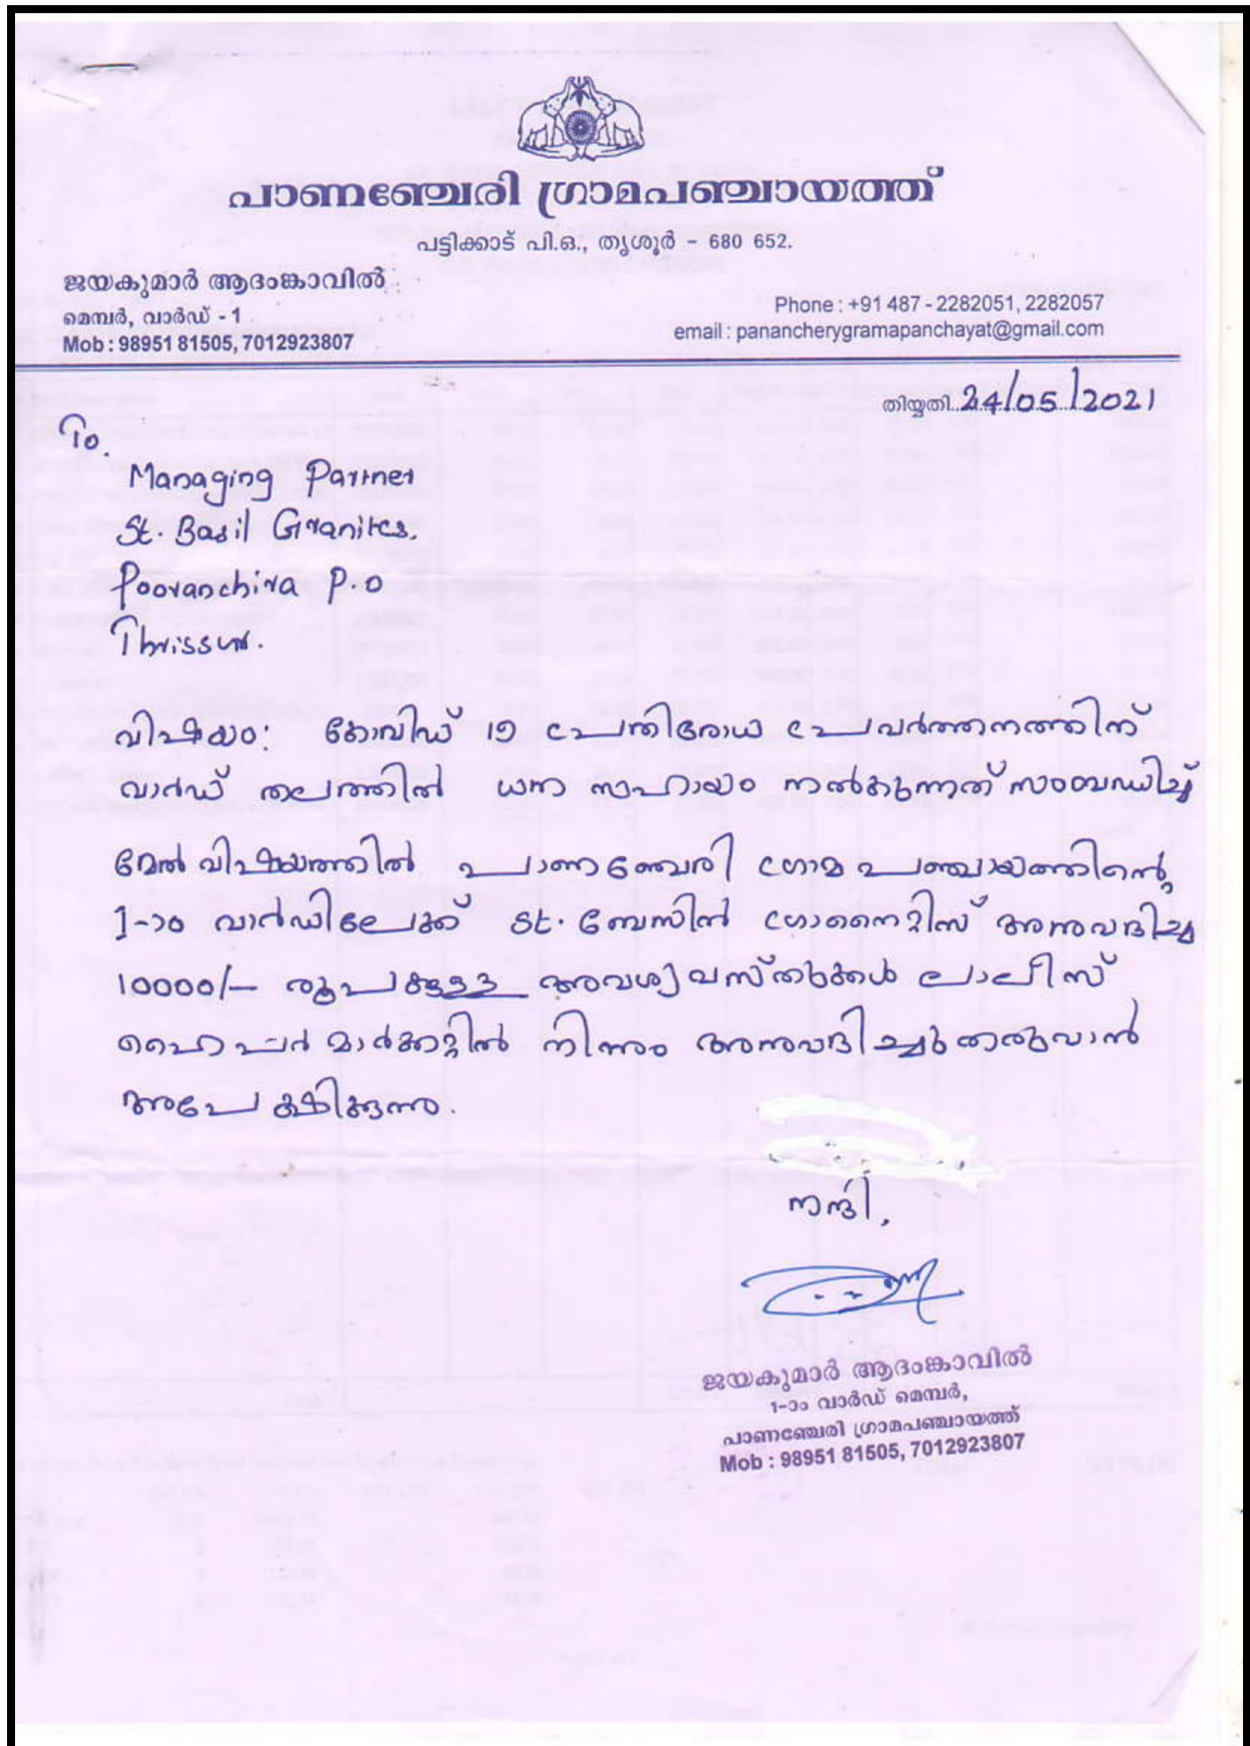 പാണഞ്ചേരി ഗ്രാമപഞ്ചായത്ത്
പട്ടിക്കാട് പി.ഒ., തൃശൂർ - 680 652.
ജയകുമാർ ആദംങ്കാവിൽ
മെമ്പർ, വാർഡ് - 1
Mob : 98951 81505, 7012923807
Phone : +91 487 - 2282051, 2282057
email : panancherygramapanchayat@gmail.com
തിയ്യതി 24/05/2021
To.
Managing Partner
St. Basil Granites.
Poovanchira P.O
Thrissur.
വിഷയം: കോവിഡ് 19 പ്രതിരോധ പ്രവർത്തനത്തിന്
വാർഡ് തലത്തിൽ ധന സഹായം നൽകുന്നത് സംബന്ധിച്ച്
മേൽ വിഷയത്തിൽ പാണഞ്ചേരി ഗ്രാമ പഞ്ചായത്തിന്റെ
1-ാം വാർഡിലേക്ക് St. ബേസിൽ ഗ്രാനൈറ്റിസ് അനുവദിച്ച
10000/- രൂപക്കുള്ള അവശ്യവസ്തുക്കൾ ലാലീസ്
ഹൈപ്പർ മാർക്കറ്റിൽ നിന്നും അനുവദിച്ചുതരുവാൻ
അപേക്ഷിക്കുന്നു.
നന്ദി,
ജയകുമാർ ആദംങ്കാവിൽ
1-ാം വാർഡ് മെമ്പർ,
പാണഞ്ചേരി ഗ്രാമപഞ്ചായത്ത്
Mob : 98951 81505, 7012923807